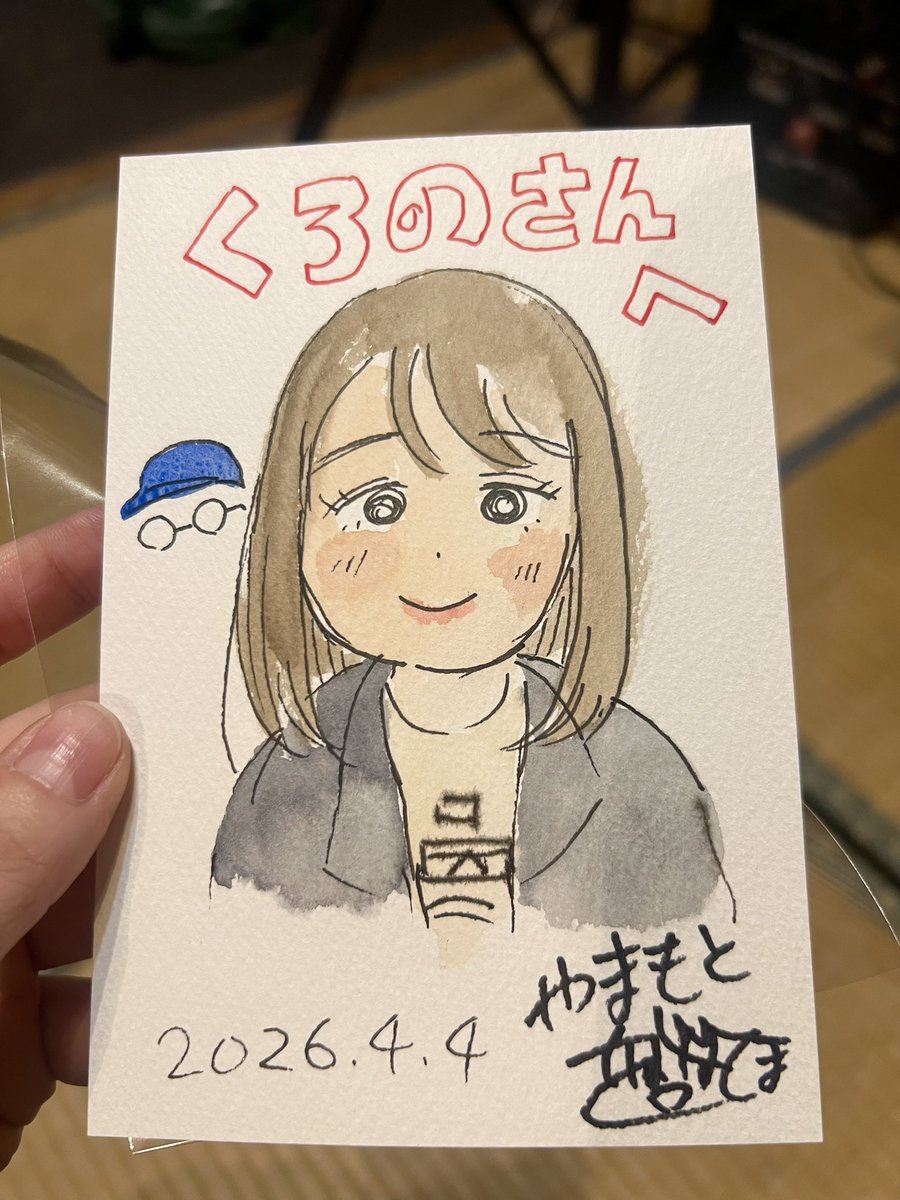 くろのさん
へ
2026.4.4
やまもと